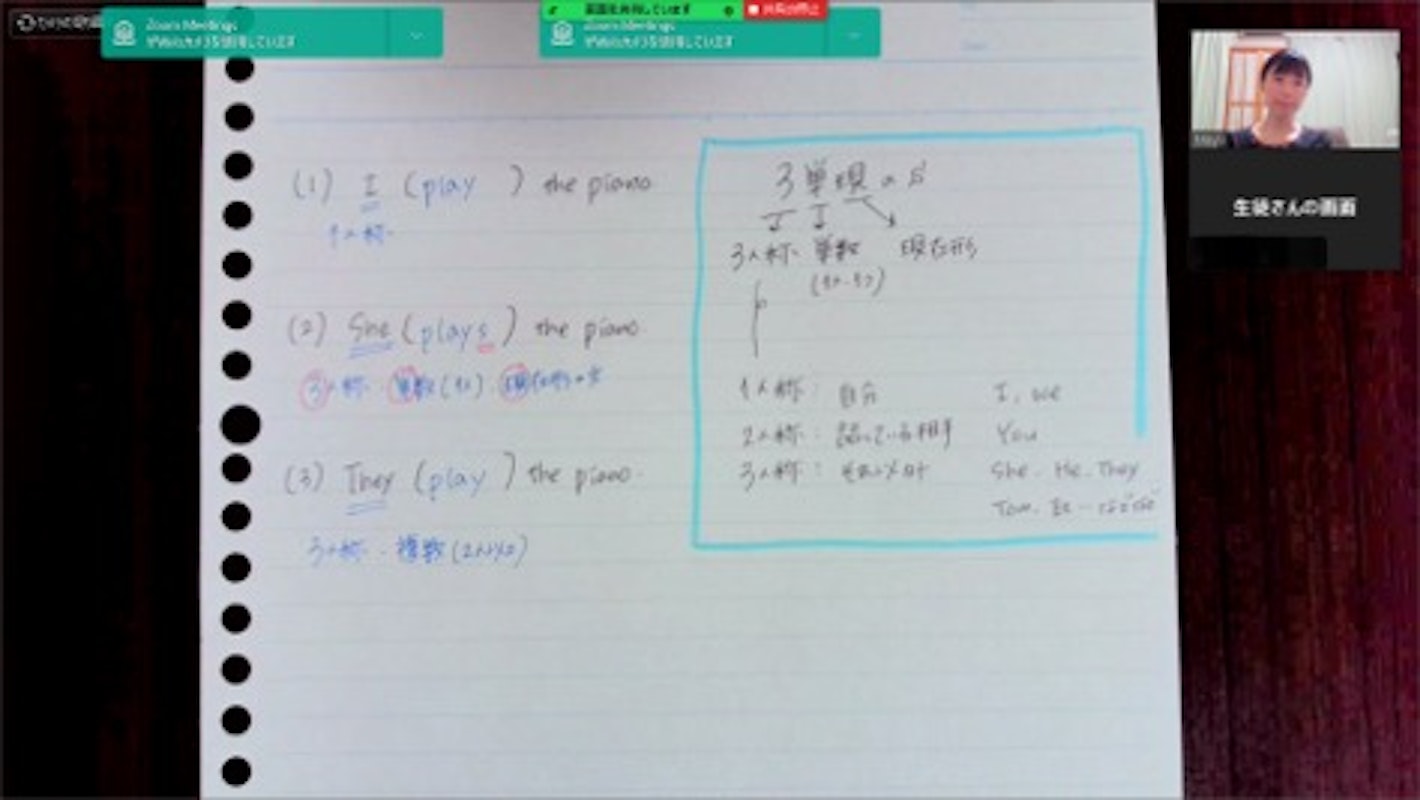 Zoom Meetings
Zoom Meetings
(1) I (play ) the piano
1人称
(2) She (plays) the piano.
3人称 単数(1人) 現在形の文
(3) They (play ) the piano.
3人称・複数(2人以上)
3単現のS
3人称 単数 現在形
1人称: 自分 I, we
2人称: 話している相手 You
3人称: それ以外 She. He. They
Tom.
生徒さんの画面